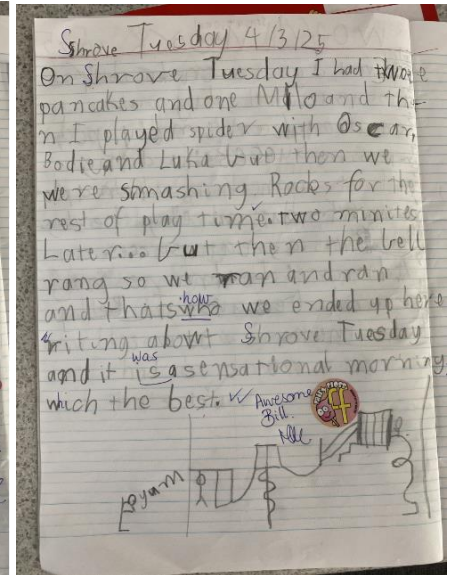 Shrove Tuesday 4/3/25
On Shrove Tuesday I had two
pancakes and one Milo and the
n I played spider with Oscar,
Bodie and Luka but then we
were smashing Rocks for the
rest of play time. two minites
Later... but then the bell
rang so we ran and ran
how
and thats who we ended up here
writing about Shrove Tuesday
was
and it is a sensational morning
which the best.
Awesome
Bill.